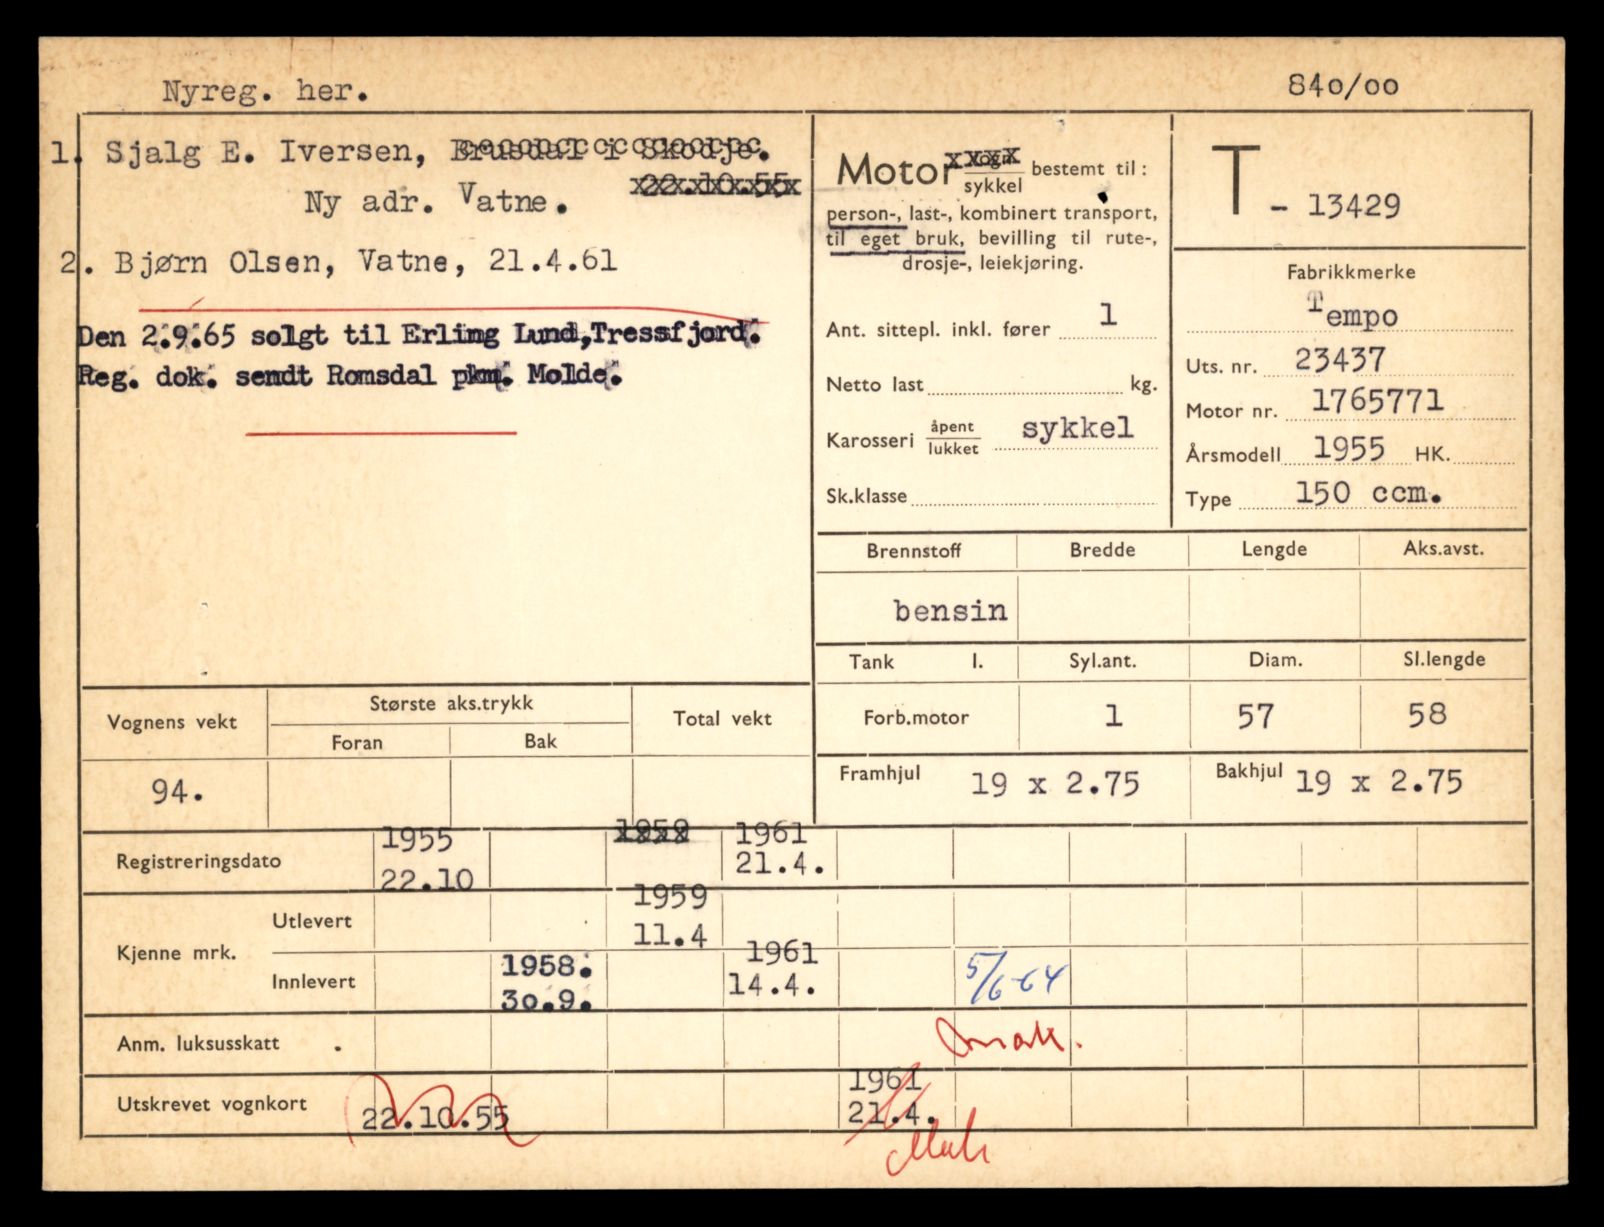 Nyreg. her.
840/00
1. Sjalg E. Iversen, Brusdal i Skodje.
22.10.55
Ny adr. Vatne.
2. Bjørn Olsen, Vatne, 21.4.61
Den 2.9.65 solgt til Erling Lund,Tressfjord.
Reg. dok. sendt Romsdal pkm. Molde.
Motor vogn/sykkel bestemt til:
person-, last-, kombinert transport,
til eget bruk, bevilling til rute-,
drosje-, leiekjøring.
Ant. sittepl. inkl. fører 1
Netto last kg.
Karosseri åpent/lukket sykkel
Sk.klasse
T - 13429
Fabrikkmerke
Tempo
Uts. nr. 23437
Motor nr. 1765771
Årsmodell 1955 HK.
Type 150 ccm.
Brennstoff Bredde Lengde Aks.avst.
bensin
Tank l. Syl.ant. Diam. Sl.lengde
Forb.motor 1 57 58
Framhjul 19 x 2.75 Bakhjul 19 x 2.75
Vognens vekt Største aks.trykk Total vekt
Foran Bak
94.
Registreringsdato 1955 1959 1961
22.10 21.4.
Kjenne mrk.
Utlevert 1959
11.4
Innlevert 1958. 1961 5/6-64
30.9. 14.4.
Anm. luksusskatt .
Utskrevet vognkort 22.10.55 1961
21.4.